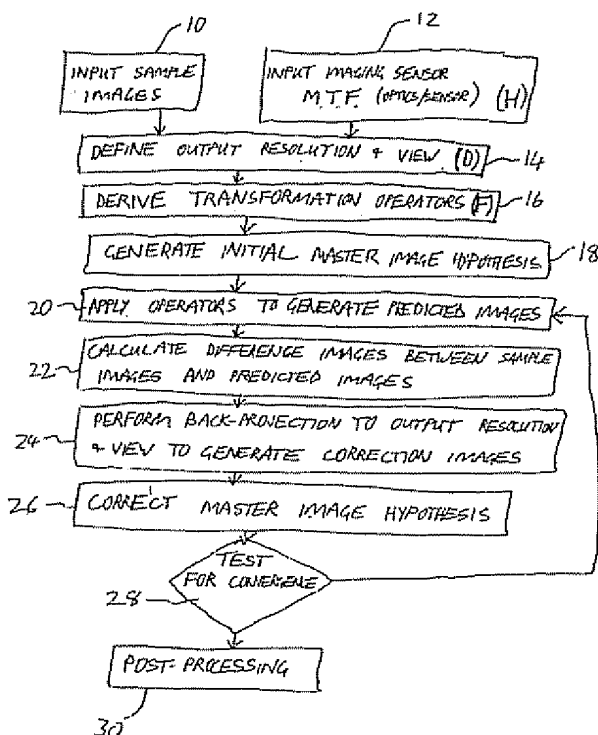 10
12
INPUT SAMPLE
IMAGES
INPUT IMAGING SENSOR
M.T.F. (OPTICS/SENSOR) (H)
DEFINE OUTPUT RESOLUTION + VIEW (D)
14
DERIVE TRANSFORMATION OPERATORS (F)
16
GENERATE INITIAL MASTER IMAGE HYPOTHESIS
18
20
APPLY OPERATORS TO GENERATE PREDICTED IMAGES
22
CALCULATE DIFFERENCE IMAGES BETWEEN SAMPLE
IMAGES AND PREDICTED IMAGES
24
PERFORM BACK-PROJECTION TO OUTPUT RESOLUTION
+ VIEW TO GENERATE CORRECTION IMAGES
26
CORRECT MASTER IMAGE HYPOTHESIS
TEST
FOR CONVERGENE
28
POST-PROCESSING
30